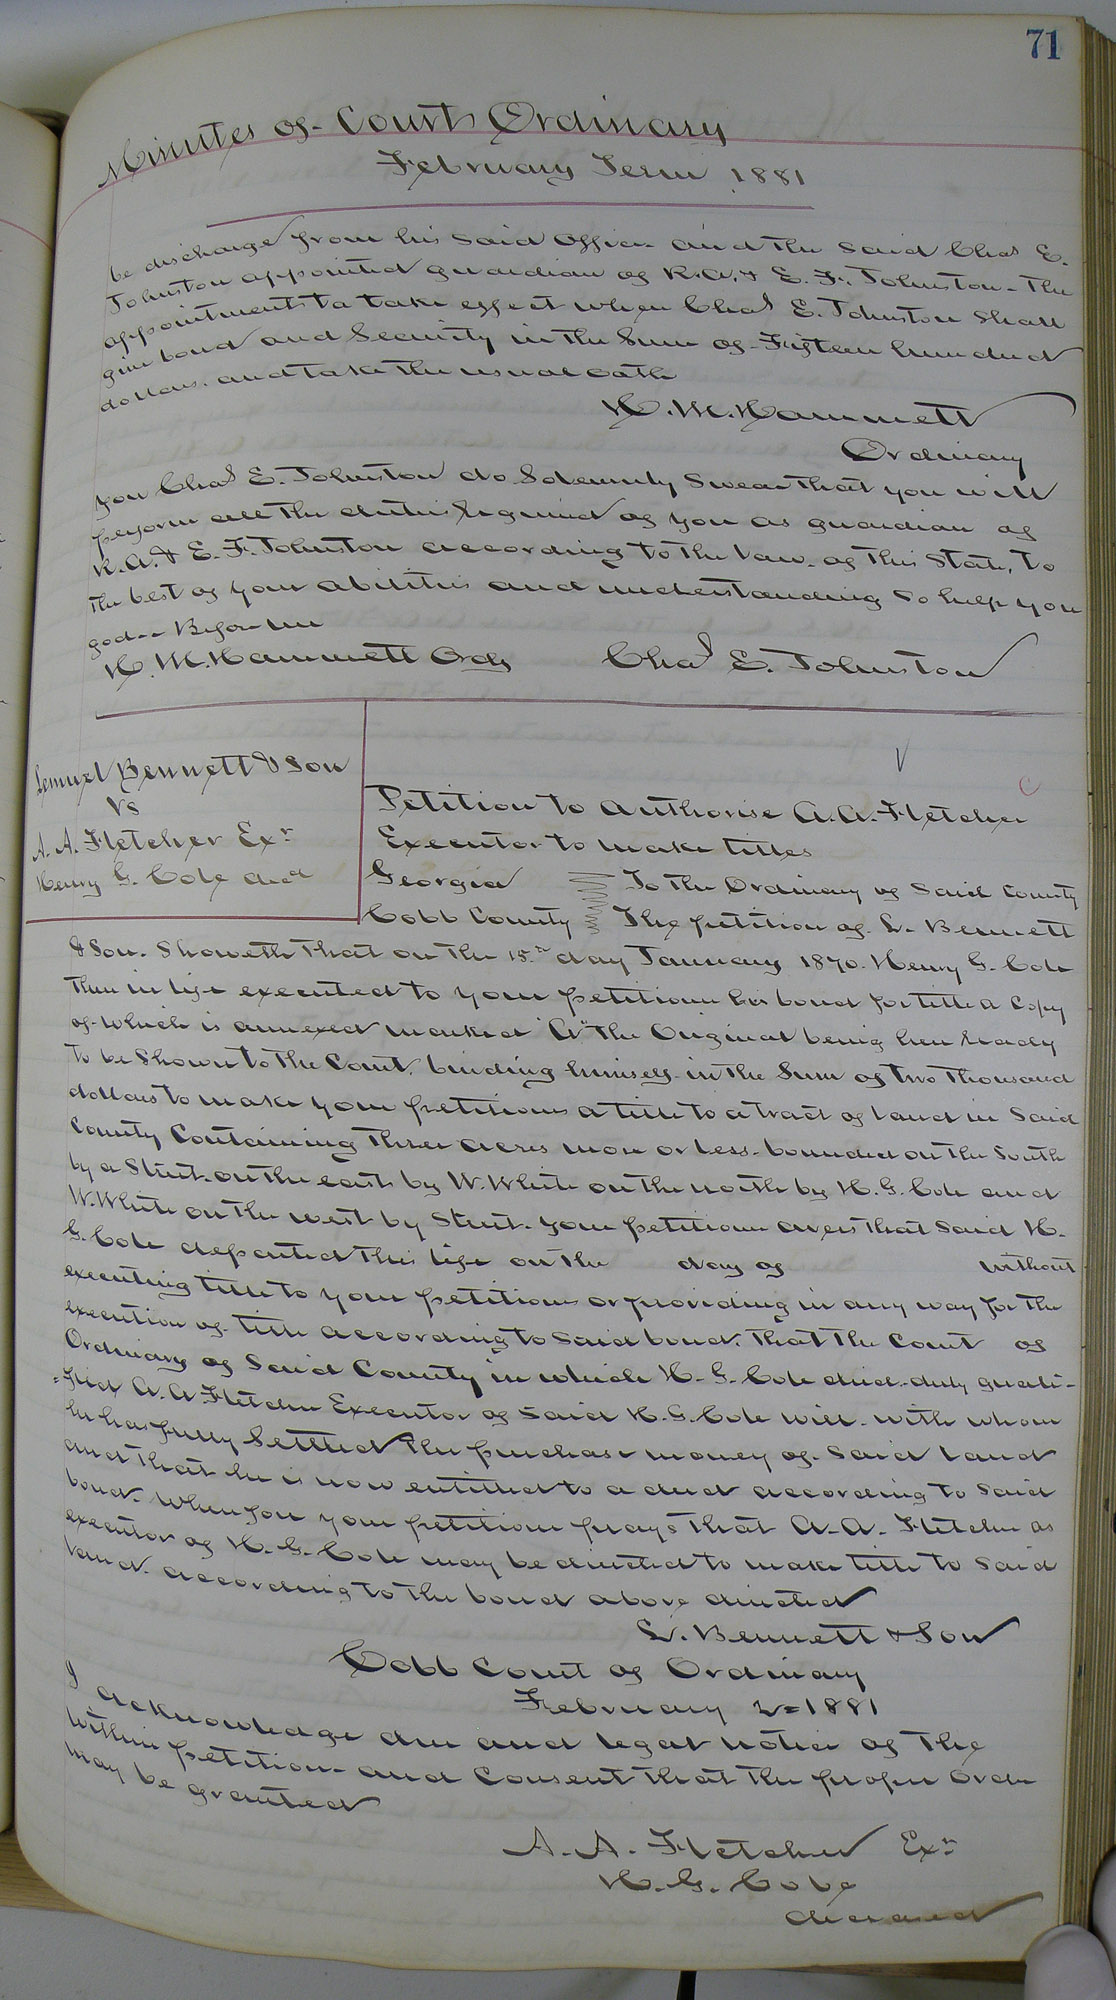 71
Minutes of Court Ordinary
February Term 1881
be discharge from his said office and the said Chas E.
Johnston appointed guardian of R.A. & E. F. Johnston - the
appointments to take effect when Chas E. Johnston shall
give bond and Security in the Sum of Fifteen hundred
dollars. and take the usual oath
H. M. Hammett
Ordinary
you Chas E. Johnston do Solemnly Swear that you will
perform all the duties required of you as guardian of
R.A. & E. F. Johnston according to the law of this State, to
the best of your abilities and understanding So help you
god -- Before me
H. M. Hammett Ordy Chas E. Johnston
Lemuel Bennett & Son
vs
A. A. Fletcher Exr
Henry G. Cole decd
Petition to authorise A.A. Fletcher
Executor to make titles
Georgia To the Ordinary of said County
Cobb County The petition of L. Bennett
& Son. Showeth that on the 15th day January 1870. Henry G. Cole
then in life executed to your petitioner his bond for title a copy
of which is annexed marked "A" the Original being here ready
to be Shown to the Court. binding himself in the Sum of two thousand
dollars to make your petitioners a title to a tract of land in Said
County Containing three acres more or less. bounded on the South
by a Street. on the east by W. White on the north by H. G. Cole and
W. White on the west by Street. your petitioner avers that Said H.
G. Cole departed this life on the day of without
executing title to your petitioners or providing in any way for the
execution of title according to said bond. that the Court of
Ordinary of Said County in which H. G. Cole died. duly quali-
=fied A. A Fletcher Executor of Said H. G. Cole will. with whom
he has fully Settled the purchase money of Said land
and that he is now entitled to a deed according to said
bond. Wherefore your petitioner prays that A. A. Fletcher as
executor of H. G. Cole may be directed to make title to Said
land. according to the bond above directed
L. Bennett & Son
Cobb Court of Ordinary
February 2= 1881
I acknowledge due and legal notice of the
within petition - and Consent that the proper order
may be granted
A. A. Fletcher Exr
H. G. Cole
deceased